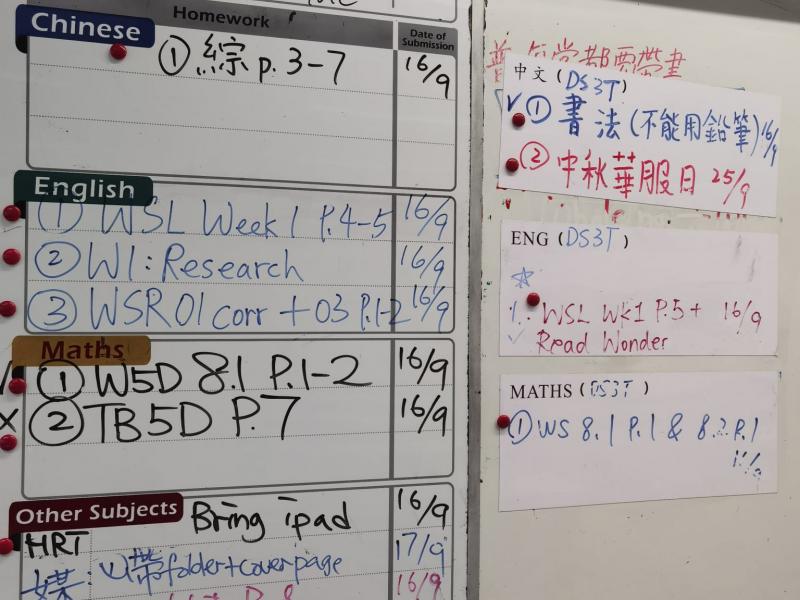 Homework
Date of Submission
Chinese
① 綜 p. 3-7 16/9
English
① WSL Week 1 P.4-5 16/9
② W1: Research 16/9
③ WSR 01 corr + 03 P.1-2 16/9
Maths
✓ ① W5D 8.1 P.1-2 16/9
✗ ② TB5D P.7 16/9
Other Subjects
Bring ipad 16/9
HRT 17/9
帶folder+coverpage
16/9
帶書
中文 (DS3T)
✓ ① 書法 (不能用鉛筆) 16/9
② 中秋華服日 25/9
ENG (DS3T)
☆
1. WSL WK1 P.5 + 16/9
✓ Read Wonder
MATHS (DS3T)
① WS 8.1 P.1 & 8.2 P.1